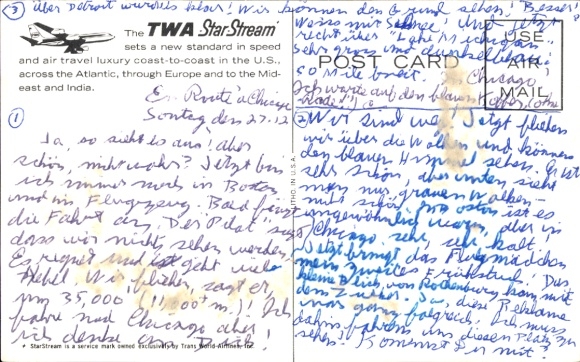 ③ Über Detroit wurde es klar! Wir können den Grund sehen! Besser!
Weiss mit Schnee! Und jetzt
recht über "Lake Michigan"
Sehr gross und dunkelblau
60 Meile breit. Chicago!
Ich warte auf den blauen
The TWA StarStream
sets a new standard in speed
and air travel luxury coast-to-coast in the U.S.,
across the Atlantic, through Europe and to the Mid-
east and India.
POST CARD
USE
AIR
MAIL
En Route à Chicago
Sontag den 27.12
①
Ja, so sieht es aus! aber
schön, nicht wahr? Jetzt bin
ich immer noch in Boston
und im Flugzeug. Bald fängt
die Fahrt an. Der Pilot sagt
dass wir nichts sehen werden.
Es regnet und es geht viel
Nebel. Wir fliehen, sagt er
um 35,000 (11,000+ m.)! Ich
fahre nach Chicago aber
ich denke an Dich!
StarStream is a service mark owned exclusively by Trans World Airlines, Inc.
LITHO IN U.S.A.
② Wir sind Jetzt fliehen
wir über die Wolken und können
den blauen Himmel sehen. Es ist
sehr schön, aber unten sieht
man nur grauen Wolken—
nicht schön. Im Osten ist es
ungewöhnlich warm, aber in
Chicago sehr, sehr kalt!
Jetzt bringt das Flugmädchen
mein zweites Frühstück! Das
kleine Blick von Rothenburg kam mit
dem Zucker. Ja, diese Reklame
war ganz folgreich. Ich muss
dahin fahren uns diesen Platz zu
sehen! Kommst Du mit?